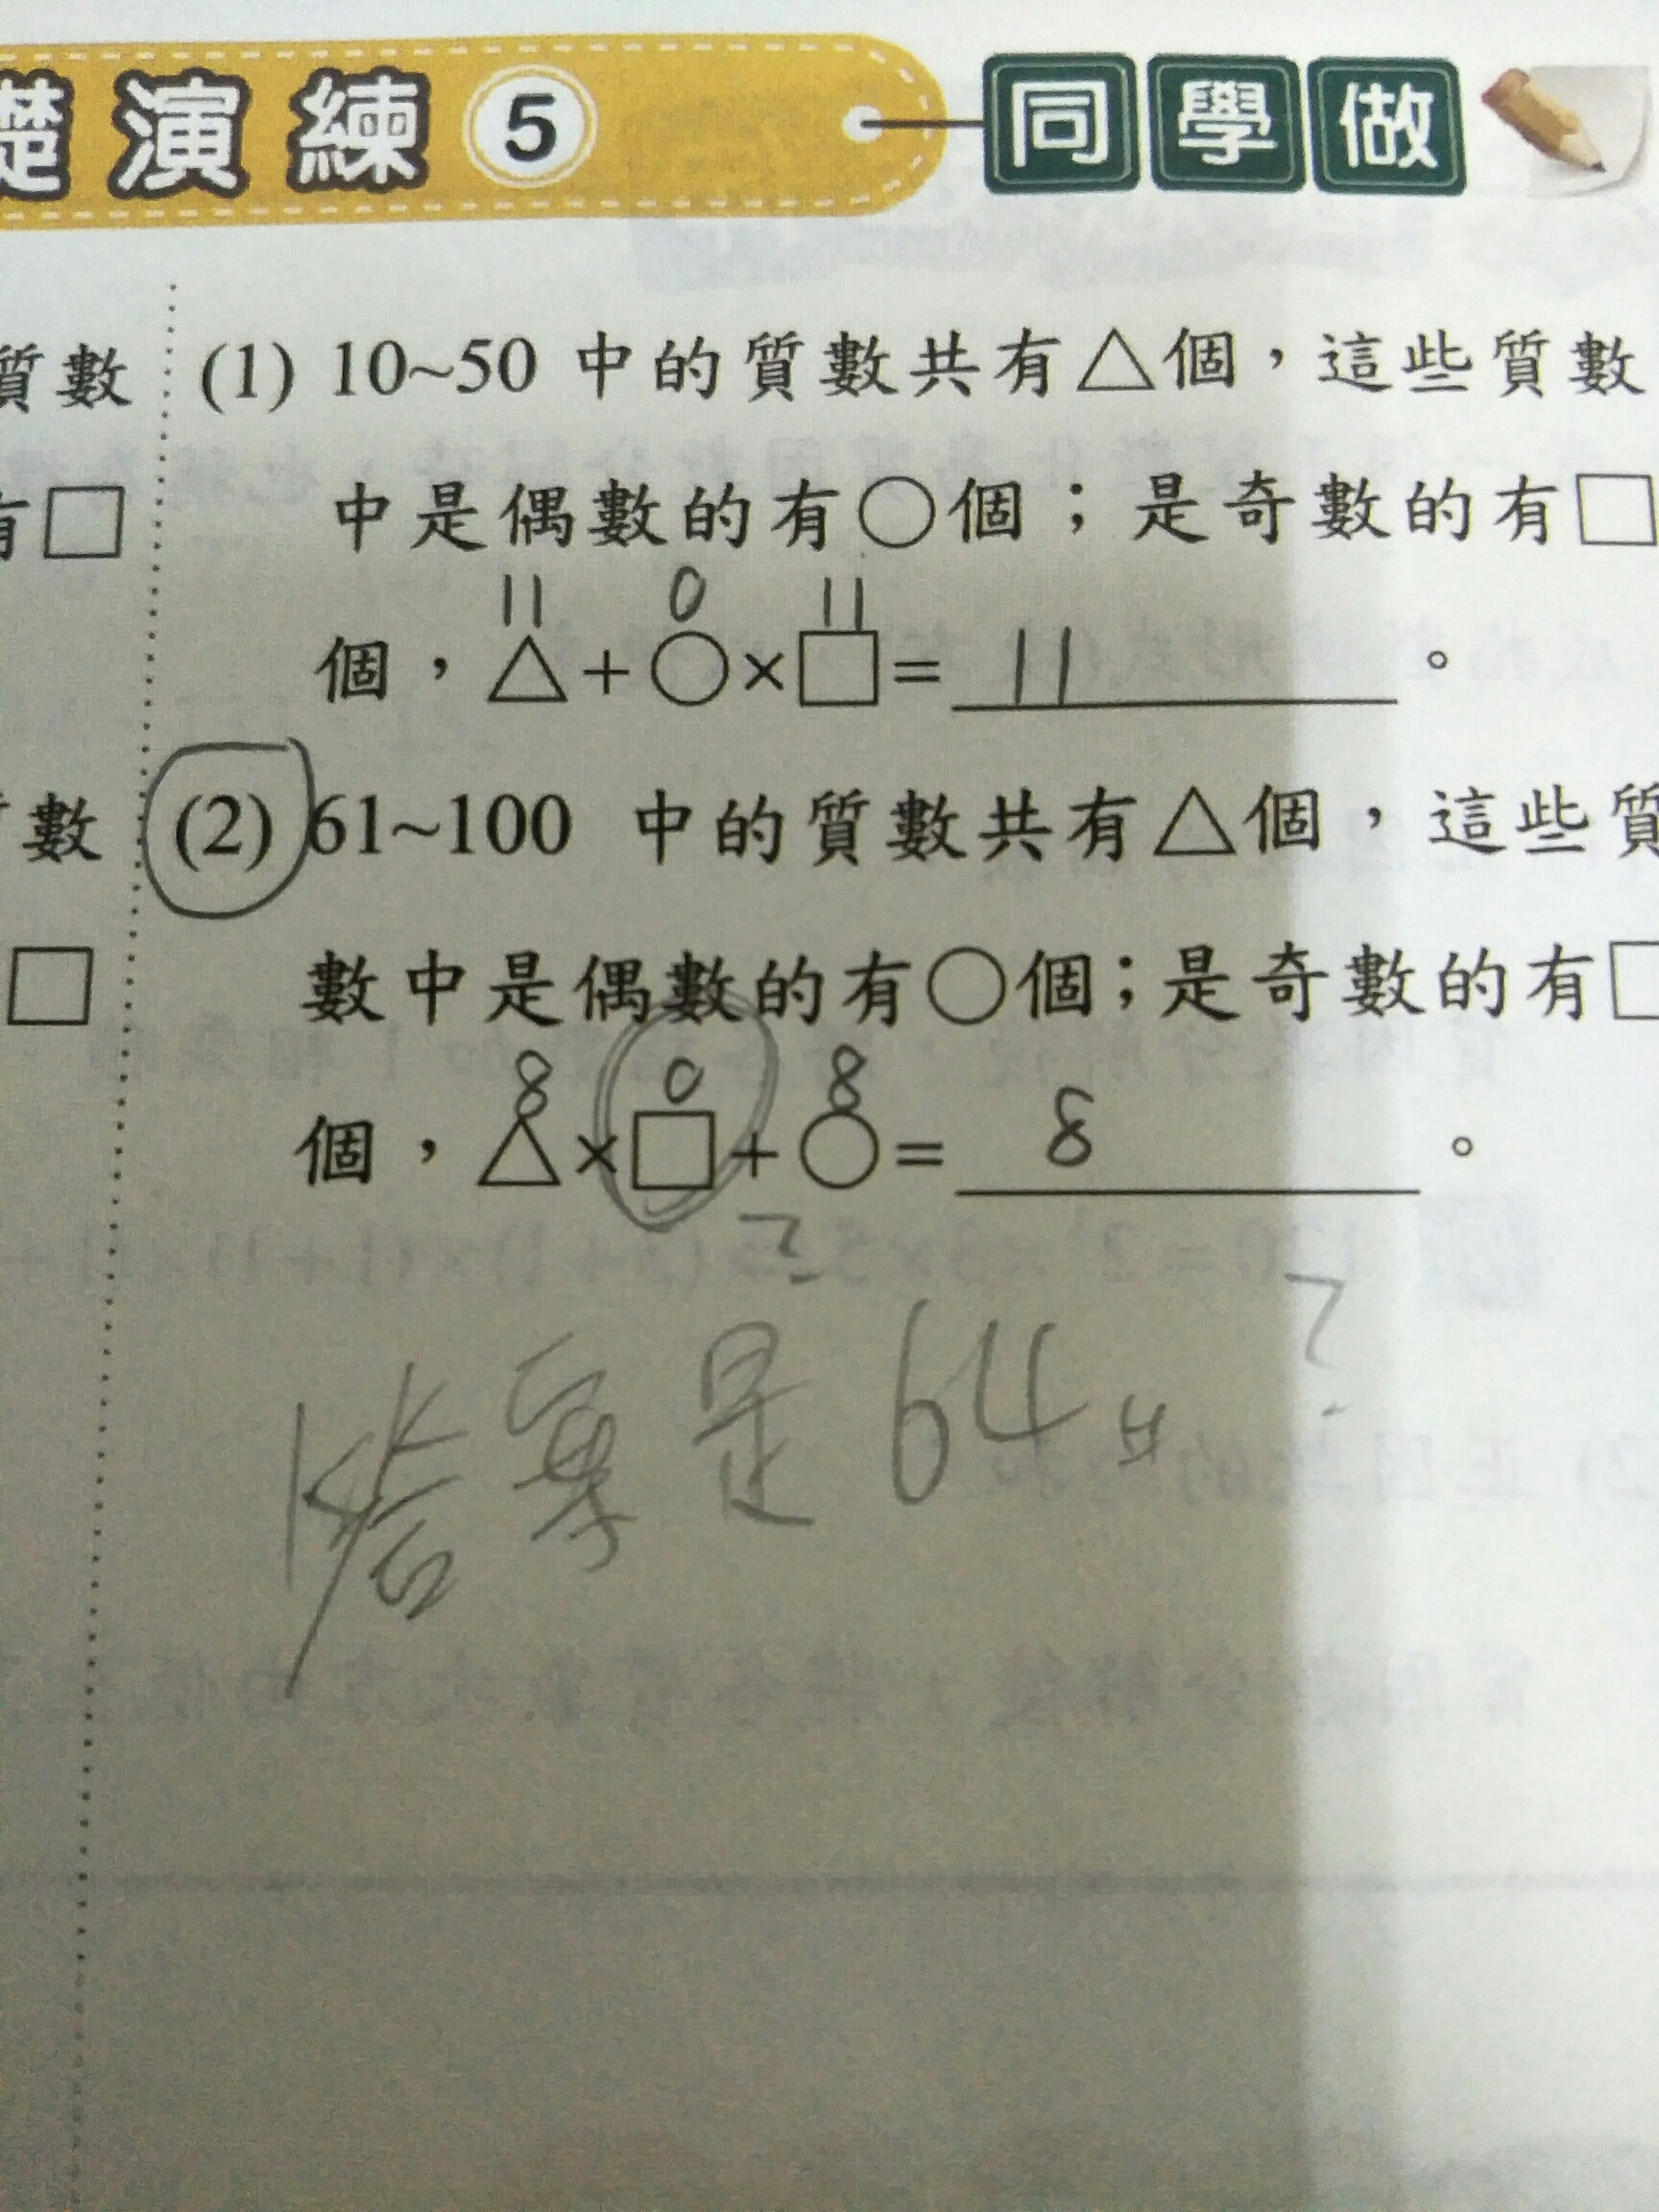 礎演練5 同學做
質數
(1) 10~50 中的質數共有△個，這些質數
有□
中是偶數的有○個；是奇數的有□
11 0 11
個，△+○×□= 11 。
數
(2) 61~100 中的質數共有△個，這些質
□
數中是偶數的有○個；是奇數的有□
8 0 8
個，△×□+○= 8 。
?
答案是64 ?